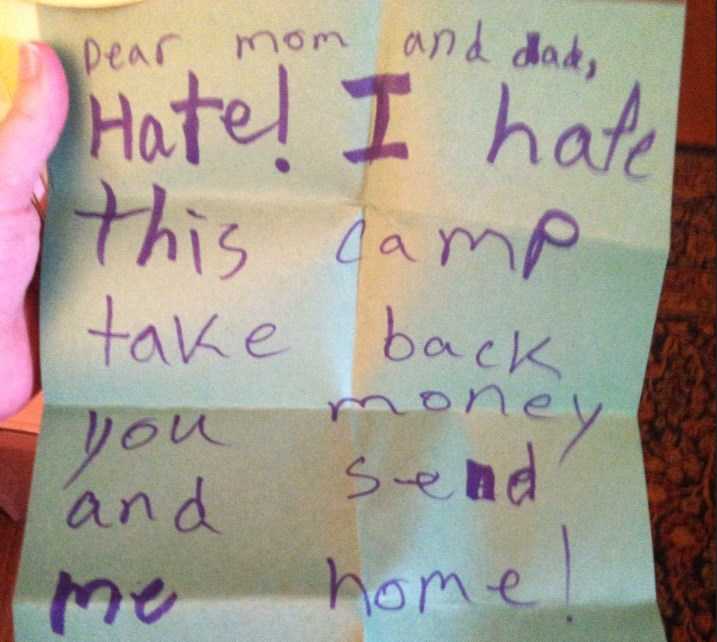 Dear mom and dad,
Hate! I hate
this camp
take back
you money
and send
me home!